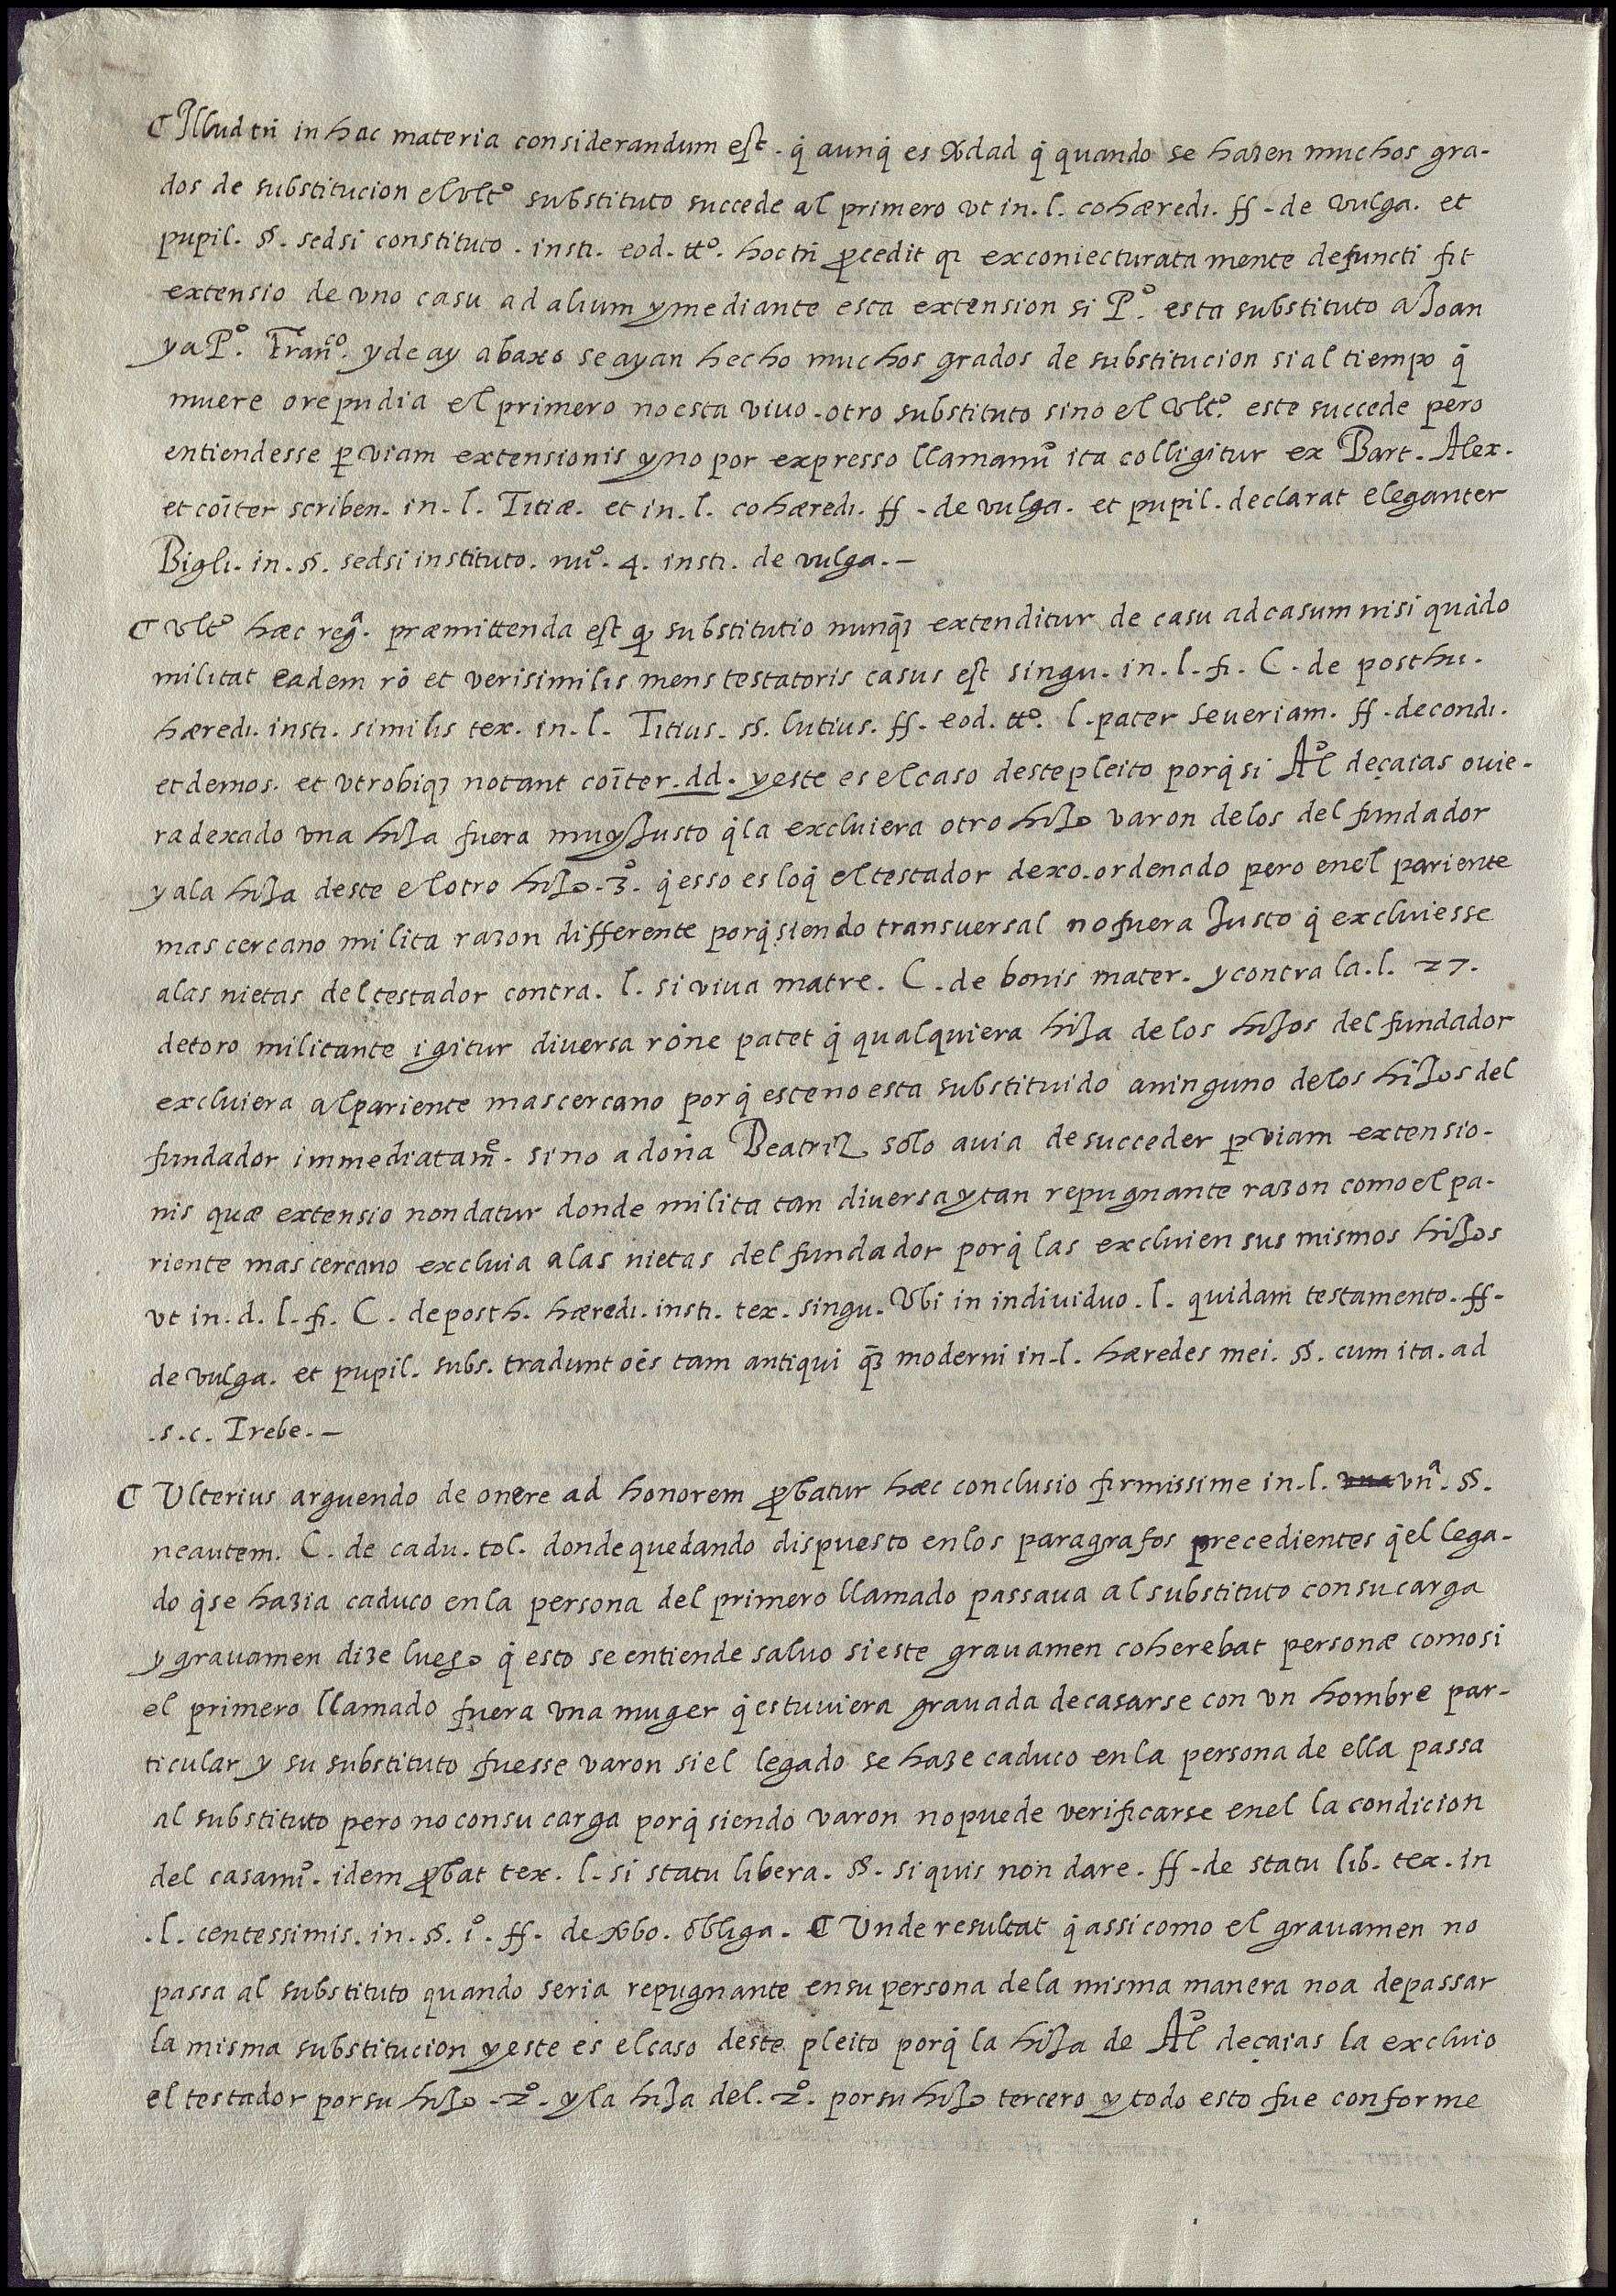 ₵ Illud tñ in hac materia considerandum est. q̃ aunq̃ es v̄dad q̃ quando se hazen muchos gra-
dos de substitucion el vltº substituto succede al primero vt in. l. cohæredi. ff. de vulga. et
pupil. §. sed si constituto. insti. eod. ttº. hoc tñ ꝓcedit qꝛ ex coniecturata mente defuncti fit
extensio de vno casu ad alium y mediante esta extension si Pº. esta substituto a Joan
y a Pº. Franᶜº. y de ay abaxo se ayan hecho muchos grados de substitucion si al tiempo q̃
muere o repudia el primero no esta viuo. otro substituto sino el vltº. este succede pero
entiendesse ꝑ viam extensionis y no por expresso llamamiº ita colligitur ex Bart. Alex.
et cōiter scriben. in. l. Titiæ. et in. l. cohæredi. ff. de vulga. et pupil. declarat eleganter
Bigli. in. §. sed si instituto. nuº. 4. insti. de vulga. –
₵ Vltº hæc regª. præmittenda est qꝫ substitutio nunq̃ꝫ extenditur de casu ad casum nisi quãdo
militat eadem rõ et verisimilis mens testatoris casus est singu. in. l. fi. C. de posthu.
hæredi. insti. similis tex. in. l. Titius. §. lutius. ff. eod. ttº. l. pater seueriam. ff. de condi.
et demos. et vtrobiqꝫ notant cōiter. dd. y este es el caso deste pleito porq̃ si Alº deçaias ouie-
ra dexado vna hija fuera muy Justo q̃ la excluiera otro hijo varon de los del fundador
y a la hija deste el otro hijo. 3º. q̃ esso es loq̃ el testador dexo. ordenado pero en el pariente
mas cercano milita razon differente porq̃ siendo transuersal no fuera Justo q̃ excluiesse
a las nietas del testador contra. l. si viua matre. C. de bonis mater. y contra la. l. 27.
de toro militante igitur diuersa rõne patet q̃ qualquiera hija de los hijos del fundador
excluiera al pariente mas cercano porq̃ este no esta substituido a ninguno de los hijos del
fundador immediatamẽ. sino a doña Beatriz solo auia de succeder ꝑ viam extensio-
nis quæ extensio non datur donde milita tan diuersa y tan repugnante razon como el pa-
riente mas cercano excluia a las nietas del fundador porq̃ las excluien sus mismos hijos
vt in. d. l. fi. C. de posth. hæredi. insti. tex. singu. Vbi in indiuiduo. l. quidam testamento. ff.
de vulga. et pupil. subs. tradunt oẽs tam antiqui q̃ꝫ moderni in. l. hæredes mei. §. cum ita. ad
.s.c. Trebe. –
₵ Vlterius arguendo de onere ad honorem ꝓbatur hæc conclusio firmissime in. l. vna vnª. §.
ne autem. C. de cadu. tol. donde quedando dispuesto en los paragrafos precedientes q̃ el lega-
do q̃ se hazia caduco en la persona del primero llamado passaua al substituto con su carga
y grauamen dize luego q̃ esto se entiende saluo si este grauamen coherebat personæ como si
el primero llamado fuera vna muger q̃ estuuiera grauada de casarse con vn hombre par-
ticular y su substituto fuesse varon si el legado se haze caduco en la persona de ella passa
al substituto pero no con su carga porq̃ siendo varon no puede verificarse en el la condicion
del casamiº. idem ꝓbat tex. l. si statu libera. §. si quis non dare. ff. de statu lib. tex. in
.l. centessimis. in. §. iº. ff. de v̄bo. obliga. ₵ Vnde resultat q̃ assi como el grauamen no
passa al substituto quando seria repugnante en su persona de la misma manera no a de passar
la misma substitucion y este es el caso deste pleito porq̃ la hija de Alº deçaias la excluio
el testador por su hijo. 2º. y la hija del. 2º. por su hijo tercero y todo esto fue conforme